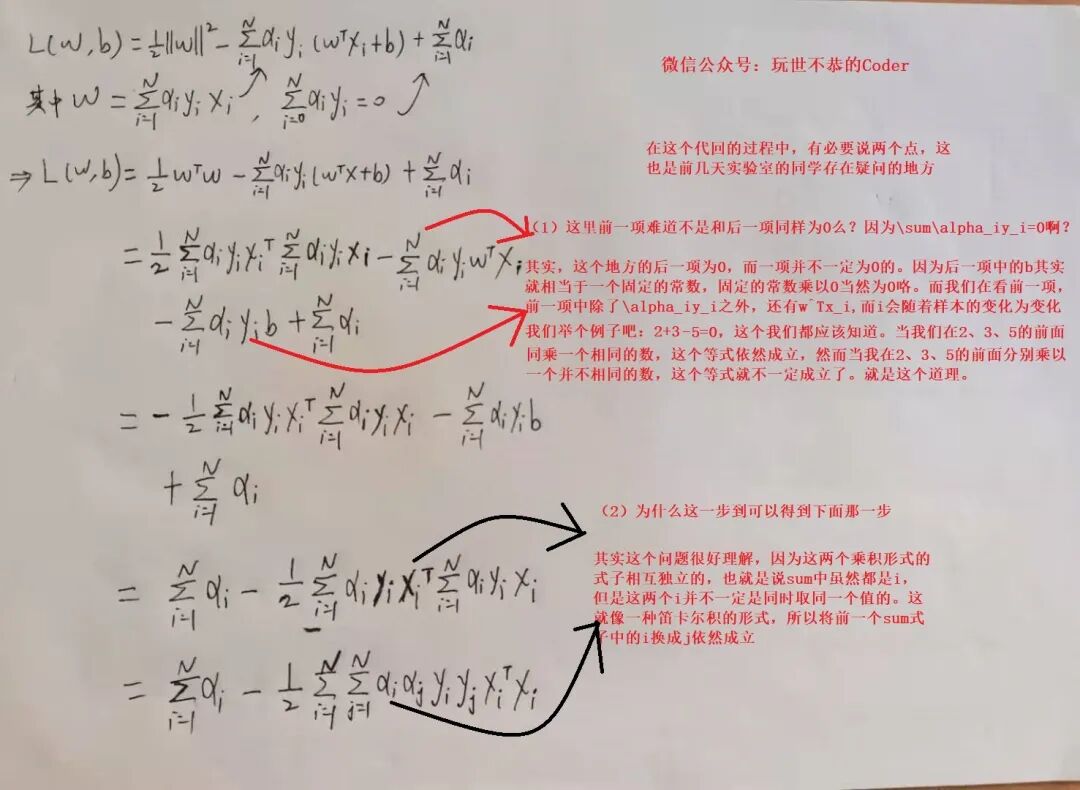 L(w,b) = ½||w||² - Σ_{i=1}^{N} α_i y_i (w^T x_i + b) + Σ_{i=1}^{N} α_i
微信公众号：玩世不恭的Coder
其中 w = Σ_{i=1}^{N} α_i y_i x_i , Σ_{i=0}^{N} α_i y_i = 0
在这个代回的过程中，有必要说两个点，这
也是前几天实验室的同学存在疑问的地方
⇒ L(w,b) = ½ w^T w - Σ_{i=1}^{N} α_i y_i (w^T x + b) + Σ_{i=1}^{N} α_i
(1) 这里前一项难道不是和后一项同样为0么？因为\sum\alpha_iy_i=0啊？
= ½ Σ_{i=1}^{N} α_i y_i x_i^T Σ_{i=1}^{N} α_i y_i x_i - Σ_{i=1}^{N} α_i y_i w^T x_i
- Σ_{i=1}^{N} α_i y_i b + Σ_{i=1}^{N} α_i
其实，这个地方的后一项为0，而一项并不一定为0的。因为后一项中的b其实
就相当于一个固定的常数，固定的常数乘以0当然为0咯。而我们在看前一项，
前一项中除了\alpha_iy_i之外，还有w^Tx_i,而i会随着样本的变化为变化
我们举个例子吧：2+3-5=0，这个我们都应该知道。当我们在2、3、5的前面
同乘一个相同的数，这个等式依然成立，然而当我在2、3、5的前面分别乘以
一个并不相同的数，这个等式就不一定成立了。就是这个道理。
= - ½ Σ_{i=1}^{N} α_i y_i x_i^T Σ_{i=1}^{N} α_i y_i x_i - Σ_{i=1}^{N} α_i y_i b
+ Σ_{i=1}^{N} α_i
(2) 为什么这一步到可以得到下面那一步
= Σ_{i=1}^{N} α_i - ½ Σ_{i=1}^{N} α_i y_i x_i^T Σ_{i=1}^{N} α_i y_i x_i
其实这个问题很好理解，因为这两个乘积形式的
式子相互独立的，也就是说sum中虽然都是i，
但是这两个i并不一定是同时取同一个值的。这
就像一种笛卡尔积的形式，所以将前一个sum式
子中的i换成j依然成立
= Σ_{i=1}^{N} α_i - ½ Σ_{i=1}^{N} Σ_{j=1}^{N} α_i α_j y_i y_j x_i^T x_i